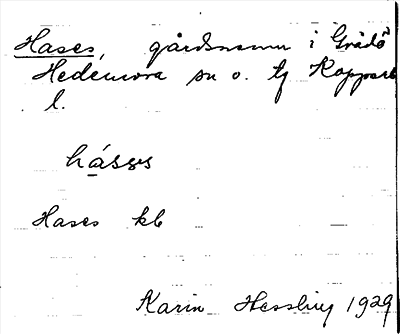 Hases, gårdsnamn i Grådö
Hedemora sn o. tg Kopparb
l.
hásɛs
Hases kb
Karin Hessling 1929